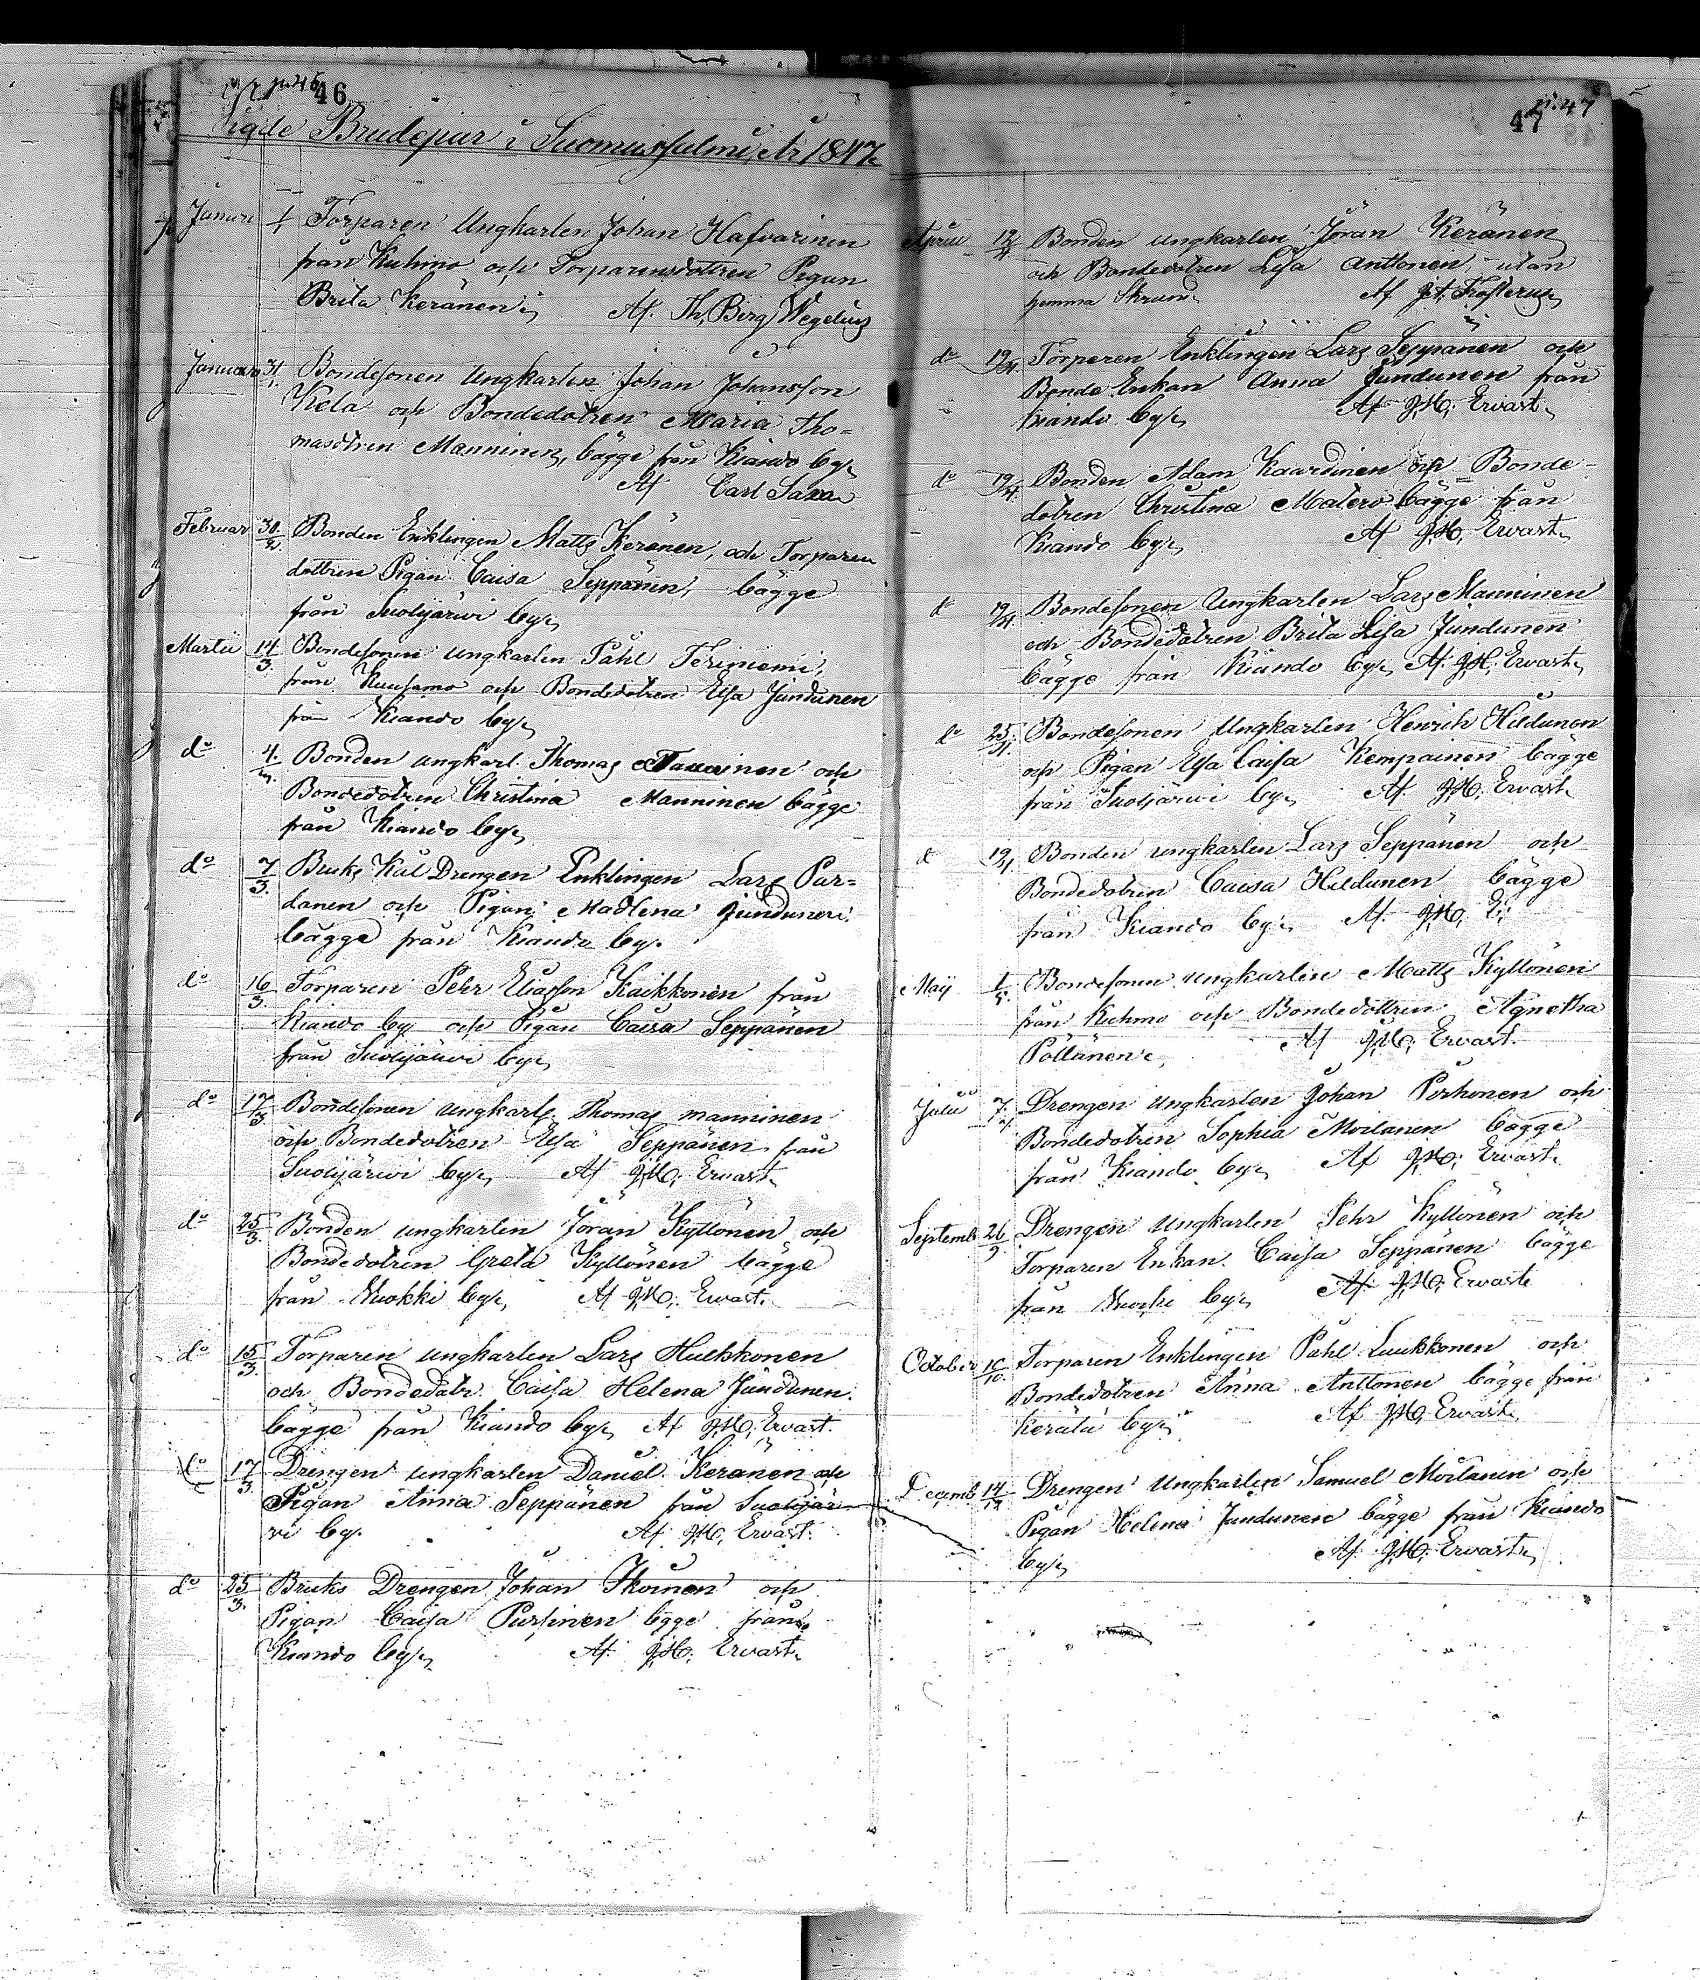 46
Vigde Brudepar i Suomussalmi År 1847
Januari 1 Torparen Ungkarlen Johan Hafvarinen
från Kuhmo och Torparensdotren Pigan
Brita Keränen Af. Th. Berg Wegelius
Januari 31/1. Bondesonen Ungkarlen Johan Johansson
Kela och Bondedotren Maria Tho=
masdtren Manninen, bägge från Kiando by
Af Carl Saxa
Februar 30/2 Bonden Enklingen Matts Keränen, och Torparen
dottren Pigan Caisa Seppänen, bägge
från Suolijärwi by
Martii 14/3. Bondesonen Ungkarlen Påhl
från Kuusamo och Bondedotren Elsa Jundunen
från Kiando by
do 4. Bonden ungkarl. Thomas och
Bondedotren Christina Manninen bägge
från Kiando by
do 7/3. Bruks Kål Drengen Enklingen Lars Par=
danen och Pigan Madlena Jundunen
bägge från Kiando by.
do 16/3 Torparen Pehr Eliasson Kaikkonen från
Kiando by och Pigan Caisa Seppänen
från Suolijärwi by
do 17/3 Bondesonen Ungkarls. Thomas manninen
och Bondedotren Elsa Seppänen från
Suolijärwi by Af J.H. Ervast.
do 25/3. Bonden ungkarlen Jöran Kyllönen och
Bondedotren Greta Kyllönen bägge
från Ruokki by Af J.H. Ervast.
do 15/3. Torparen ungkarlen Lars Hulkkonen
och Bondedotr. Caisa Helena Jundunen.
bägge från Kiando by Af J.H. Ervast.
do 17/3 Drengen ungkarlen Daniel Keränen och
Pigan Anna Seppänen från Suolijär
vi by. Af J.H. Ervast.
do 25/3. Bruks Drengen Johan Ikoinen och
Pigan Caisa Pursinen bgge från
Kiando by Af. J.H. Ervast.
47
April 12/4 Bonden ungkarlen Jöran Keränen
och Bondedotren Lisa Anttonen, utan
hemma Af
do 19/4. Torparen Enklingen Lars Seppänen och
Bonde Enkan Anna Jundunen från
Kiando by Af J.H. Ervast.
do 19/4. Bonden Adam Kaardinen och Bonde-
dotren Christina Matero bägge från
Kiando by Af J.H. Ervast.
do 19/4. Bondesonen Ungkarlen Lars Manninen
och Bondedotren Brita Lisa Jundunen
bägge från Kiando by Af. J.H. Ervast.
do 25/4. Bondesonen Ungkarlen Henrich Hildunen
och Pigan Elsa Caisa Kempainen bägge
från Suolijärwi by Af J.H. Ervast.
d 19/4 Bonden ungkarlen Lars Seppänen och
Bondedotren Caisa Hildunen bägge
från Kiando by Af. J.H. E.
Maij 1/5. Bondesonen ungkarlen Matts Kyllönen
från Kuhmo och Bondedottren Agnetha
Pöllänen Af J.H. Ervast.
Julii 7. Drengen Ungkarlen Johan Perhonen och
Bondedotren Sophia Moilanen bägge
från Kiando by Af J.H. Ervast.
Septemb 26/9 Drengen Ungkarlen Pehr Kyllönen och
Torparen Enkan. Caisa Seppänen bägge
från Ruoki by Af J.H. Ervast
October 10/10. Torparen Enklingen Påhl Luukkonen och
Bondedotren Anna Anttonen bägge från
Kerälä by Af J.H. Ervast.
Decemb 14/12 Drengen Ungkarlen Samuel Moilanen och
Pigan Helena Jundunen bägge från Kiando
by Af. J.H. Ervast.